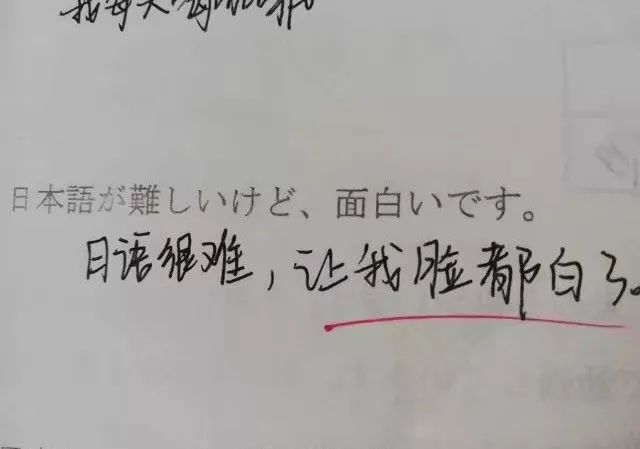 我每天喝
日本語が難しいけど、面白いです。
日语很难，让我脸都白了。